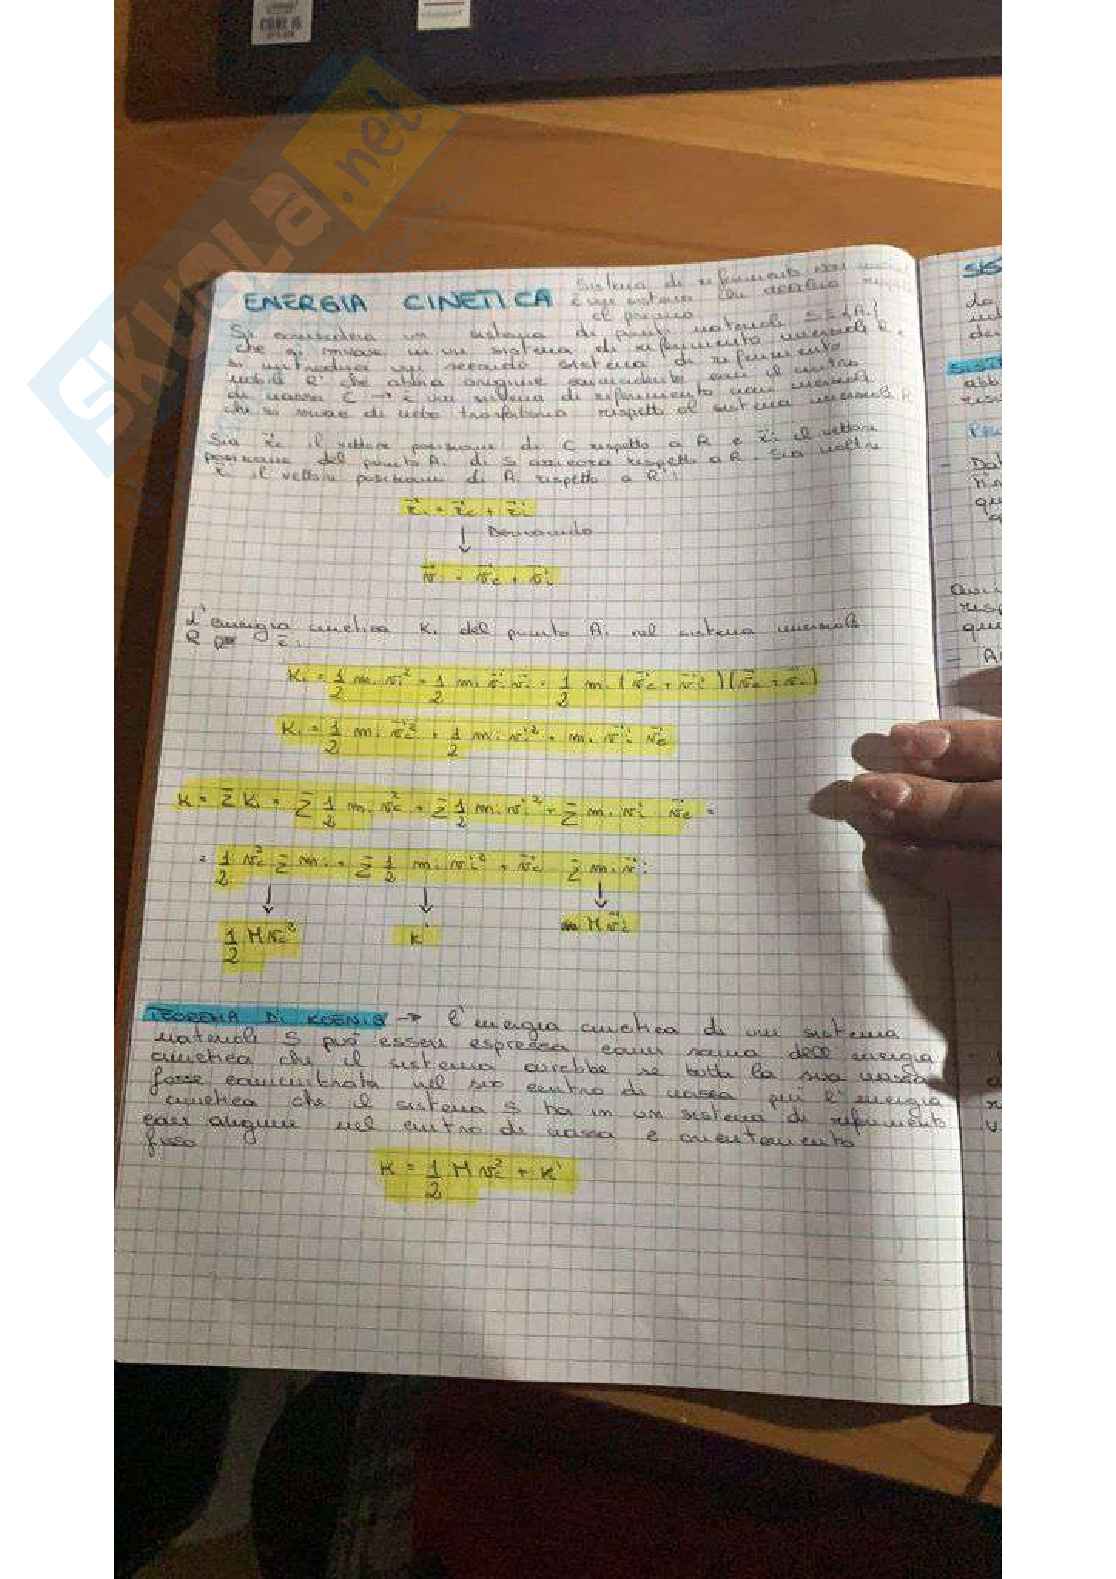 SKUOLA.net
ENERGIA CINETICA Sistema di riferimento non
Si considera un sistema di punti materiali S={Ai}
che si muove in un sistema di riferimento inerziale R.
si introduca un secondo sistema di riferimento
mobile R' che abbia origine coincidente con il centro
di massa C → è un sistema di riferimento non inerziale
che si muove di moto traslatorio rispetto al sistema inerziale R
Sia r⃗c il vettore posizione di C rispetto a R e r⃗i il vettore
posizione del punto Ai di S ancora rispetto a R. Sia inoltre
r⃗i' il vettore posizione di Ai rispetto a R':
r⃗i = r⃗c + r⃗i'
↓ Derivando
v⃗i = v⃗c + v⃗i'
L'energia cinetica Ki del punto Ai nel sistema inerziale
R è:
Ki = 1/2 mi vi² = 1/2 mi v⃗i v⃗i = 1/2 mi (v⃗c + v⃗i') (v⃗c + v⃗i')
Ki = 1/2 mi v⃗c² + 1/2 mi vi'² + mi v⃗i' v⃗c
K = Σ Ki = Σ 1/2 mi vc² + Σ 1/2 mi vi'² + Σ mi vi' v⃗c =
= 1/2 vc² Σ mi + Σ 1/2 mi vi'² + v⃗c Σ mi v⃗i'
↓ ↓ ↓
1/2 Mvc² K' M v⃗c'
TEOREMA DI KOENIG → L'energia cinetica di un sistema
materiale S può essere espressa come somma dell'energia
cinetica che il sistema avrebbe se tutta la sua massa
fosse concentrata nel suo centro di massa più l'energia
cinetica che il sistema S ha in un sistema di riferimento
con origine nel centro di massa e orientamento
fisso
K = 1/2 M vc² + K'